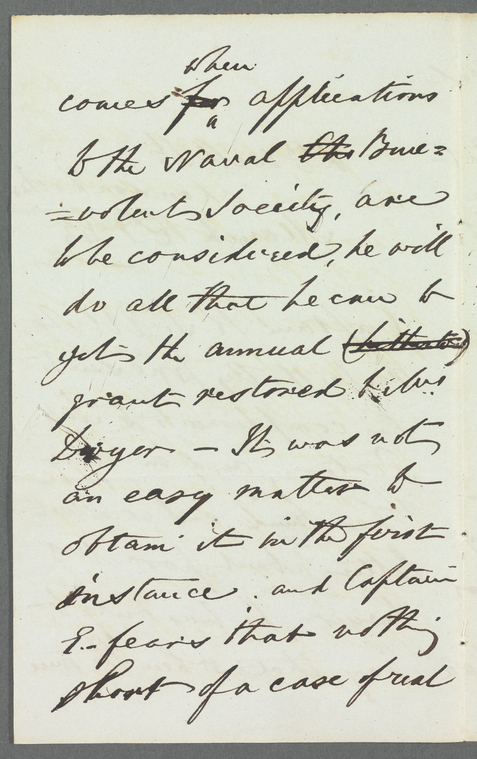 when
comes for applications
to the Naval the Bene=
=volent Society, are
to be considered, he will
do all that he can to
get the annual (hitherto)
grant restored to Mrs
Dwyer – It was not
an easy matter to
obtain it in the first
instance . and Captain
E- fears that nothing
short of a case of real